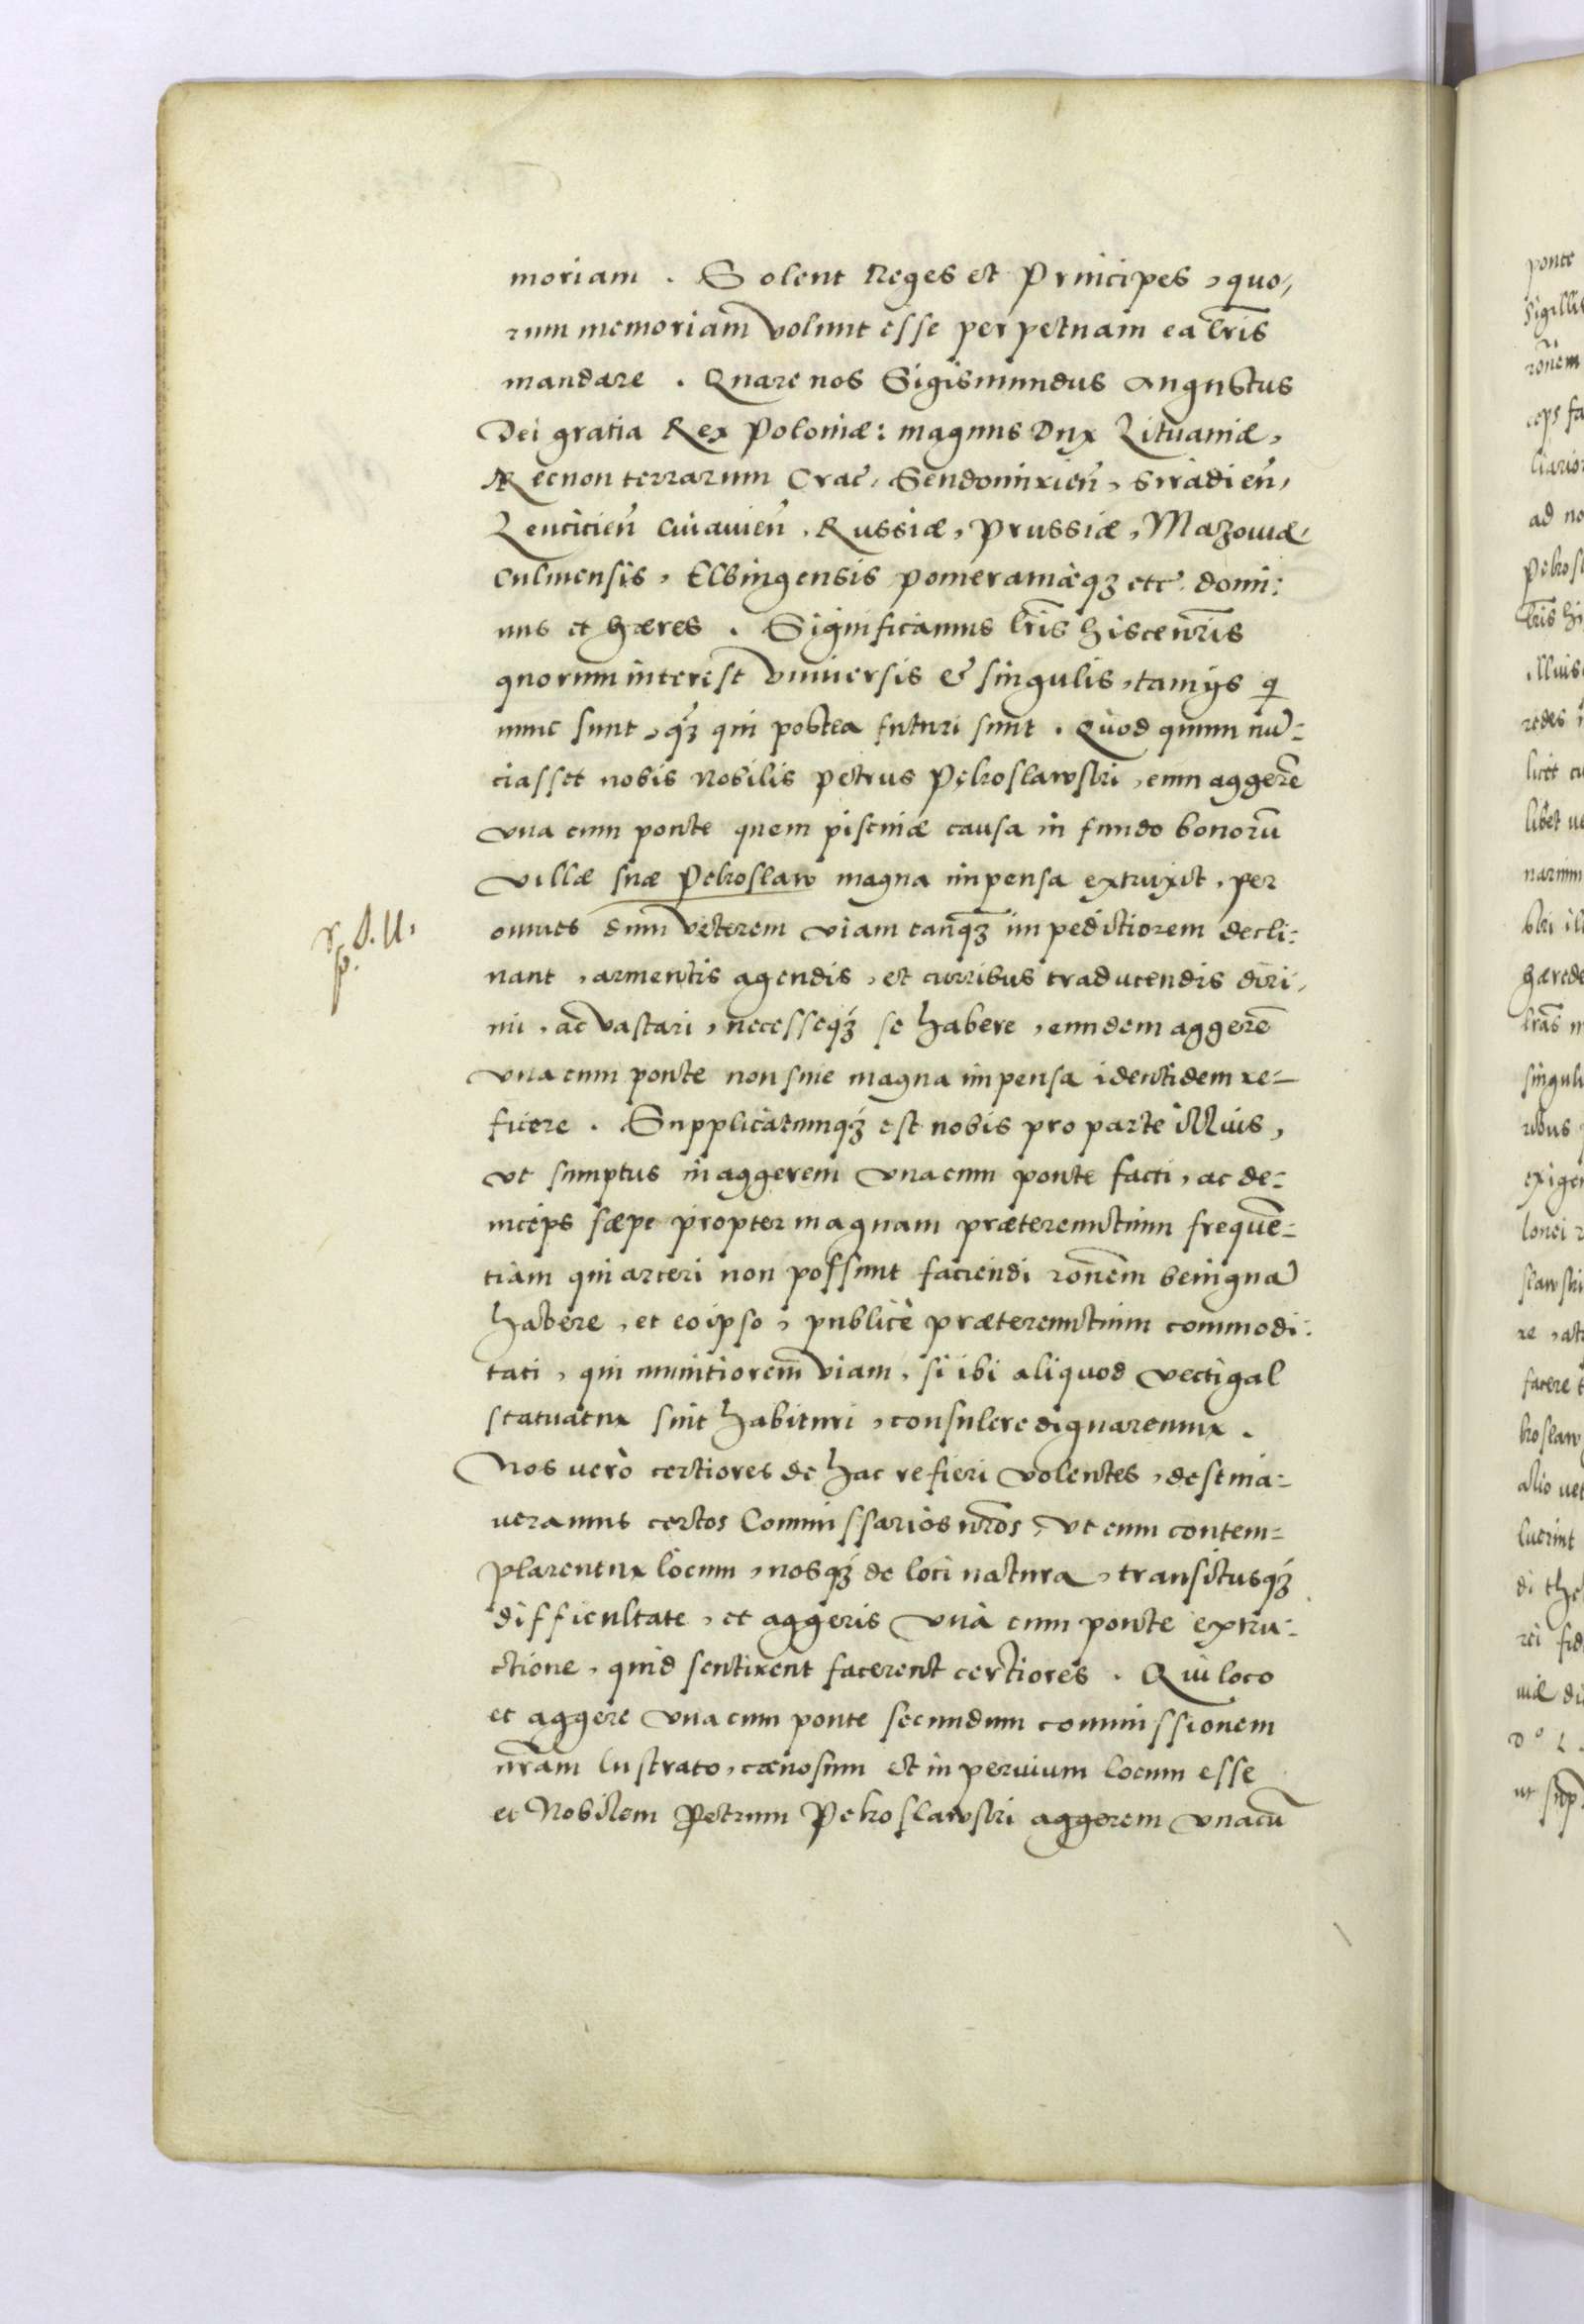 moriam . Solent Reges et Principes , quo,
rum memoriam volunt esse perpetuam ea lr̄is
mandare . Quare nos Sigismundus Augustus
Dei gratia Rex Poloniæ: magnus Dux Lituaniæ,
Necnon terrarum Crac̄, Sendomirień, Siradień,
Lencicień Cuiauień, Russiæ, Prussiæ, Mazouiæ,
Culmensis, Elbingensis Pomeraniæq₃ etc̄. domi:
nus et hæres . Significamus lr̄is hisce nr̄is
quorum interest vniuersis & singulis, tam ijs q
nunc sunt, q̄₃ qui postea futuri sunt . Quòd quum nū=
ciasset nobis Nobilis Petrus Pękoslawski, eum aggerē
vna cum ponte quem piscinæ causa in fundo bonorū
villæ suæ Pekoslaw magna impensa extruxit, per
omnes dum veterem viam tanq̄₃ impeditiorem decli:
nant, armentis agendis, et curribus traducendis diri,
mi, ac vastari, necesseq₃ se habere, eundem aggerē
vna cum ponte non sine magna impensa identidem re=
ficere . Supplicatumq₃ est nobis pro parte illius,
vt sumptus in aggerem vna cum ponte facti, ac de=
inceps sæpe propter magnam prætereuntium frequē=
tiam qui arceri non possunt faciendi ron̄em benignā
habere, et eo ipso, publicè prætereuntium commodi:
tati, qui munitiorem viam, si ibi aliquod vectigal
statuatur sint habituri, consulere dignaremur .
Nos verò certiores de hac re fieri volentes, destina=
ueramus certos Commissarios nr̄os, vt eum contem=
plarentur locum, nosq₃ de loci natura, transitusq₃
difficultate, et aggeris vnà cum ponte extru=
ctione, quid sentirent facerent certiores . Qui loco
et aggere vna cum ponte secundum commissionem
nr̄am lustrato, cænosum et inperuium locum esse
et Nobilem Petrum Pekoslawski aggerem vnacū